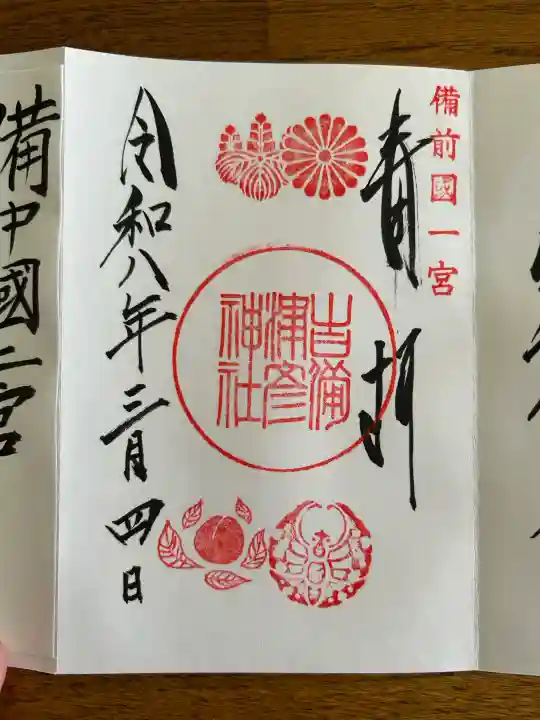 備前國一宮
奉拝
吉備
津彦
神社
令和八年三月四日
備中國二宮